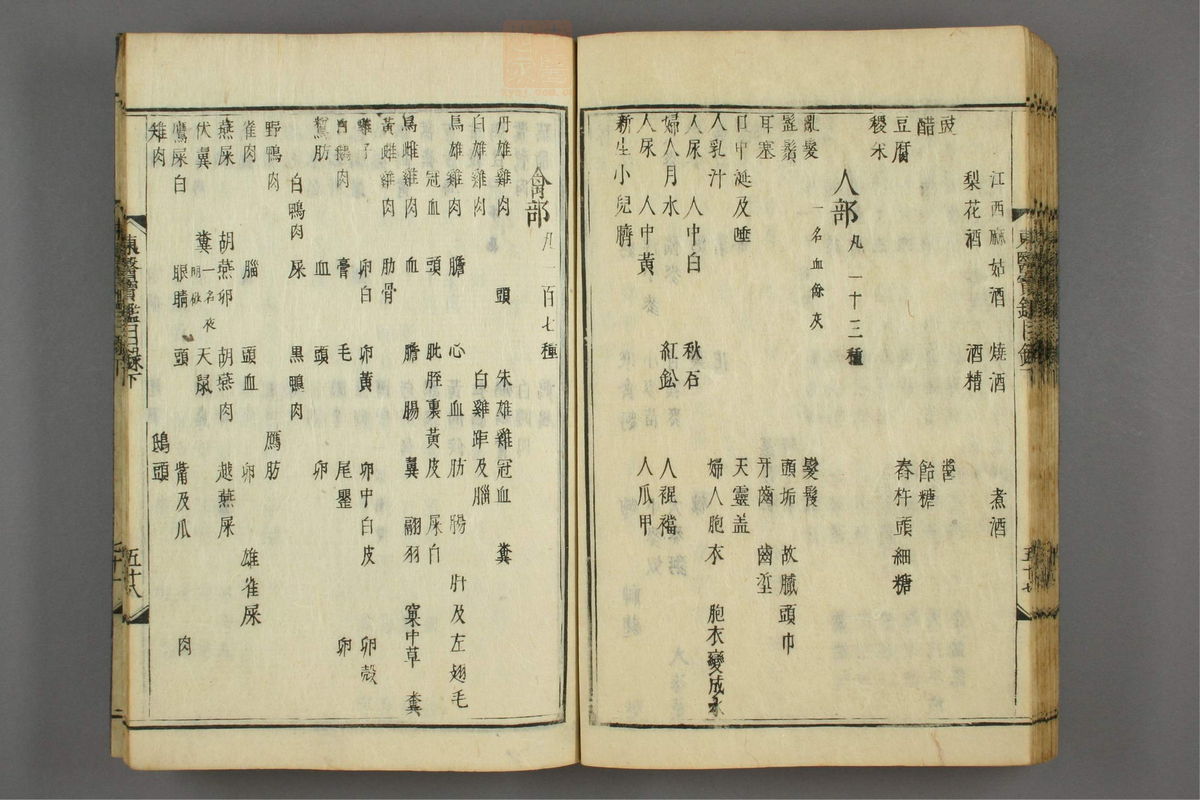 江西麻姑酒 燒酒 煮酒
梨花酒 酒糟
豉 醬
醋 飴糖
豆腐 舂杵頭細糠
稷米
人部 凡一十三種
亂髮 一名血餘灰 髮髲
髭鬚 頭垢 故膩頭巾
耳塞 牙齒 齒垽
口中涎及唾 天靈盖
人乳汁 婦人胞衣 胞衣變成水
人尿 人中白 秋石
婦人月水 紅鈆 人裩襠
人屎 人中黃 人爪甲
新生小兒臍
東醫寶鑑目錄下
五十七
禽部 凡一百七種
丹雄雞肉 頭 朱雄雞冠血 糞
白雄雞肉 白雞距及腦
烏雄雞肉 膽 心 血 肪 腸 肝及左翅毛
冠血 頭 肶胵裏黃皮 屎白
烏雌雞肉 血 膽 腸 翼 翮羽 窠中草 糞
黃雌雞肉 肋骨
雞子 卵白 卵黃 卵中白皮 卵殼
白鵝肉 膏 毛 尾罌 卵
鶩肪 血 頭 卵
白鴨肉 屎 黑鴨肉
野鴨肉 鴈肪
雀肉 腦 頭血 卵 雄雀屎
燕屎 胡燕卵 胡燕肉 越燕屎
伏翼 糞 一名夜明砂 天鼠
鷹屎白 眼睛 頭 觜及爪 肉
雉肉 鴟頭
東醫寶鑑目錄下
五十八